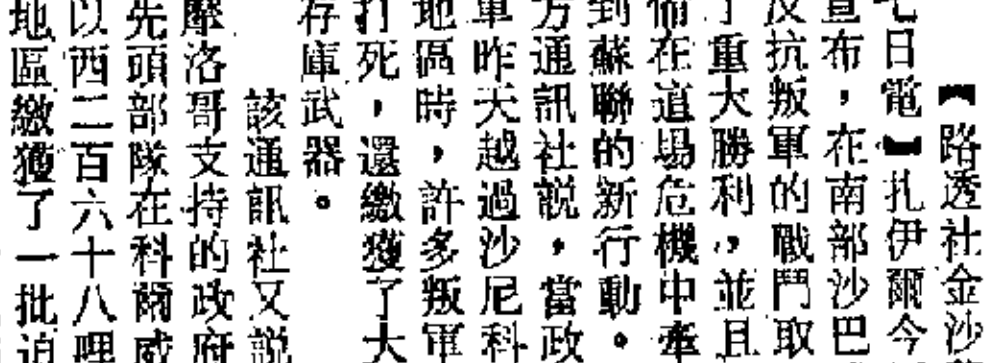 【路透社金沙
七日電】扎伊爾今
宣布，在南部沙巴
反抗叛軍的戰鬥取
了重大勝利，並且
備在這場危機中牽
到蘇聯的新行動。
方通訊社説，當政
軍昨天越過沙尼科
地區時，許多叛軍
打死，還繳獲了大
存庫武器。
該通訊社又説
摩洛哥支持的政府
先頭部隊在科爾威
以西二百六十八哩
地區繳獲了一批迫